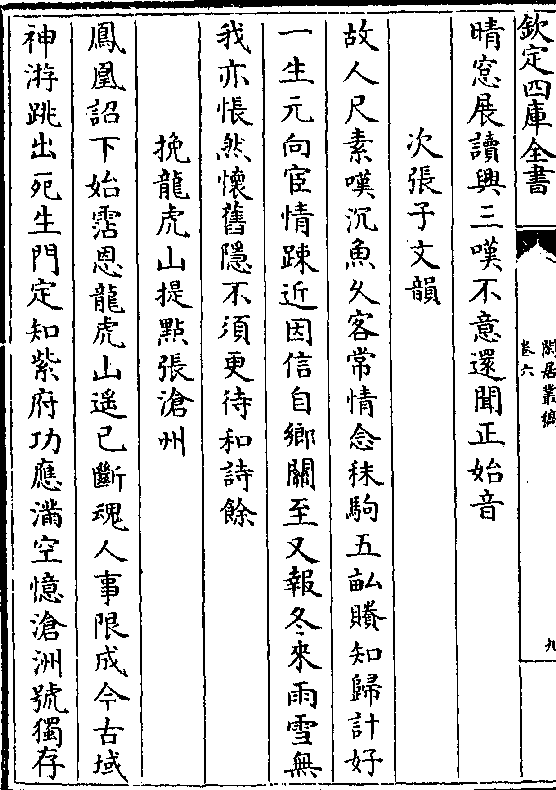 欽定四庫全書
閑居叢稿
卷六
九
晴窓展讀興三嘆不意還聞正始音
次張子文韻
故人尺素嘆沉魚久客常情念秣駒五畝賸知歸計好
一生元向宦情踈近因信自鄉關至又報冬來雨雪無
我亦悵然懷舊隱不須更待和詩餘
挽龍虎山提點張滄州
鳳凰詔下始霑恩龍虎山遥已斷魂人事限成今古域
神游跳出死生門定知紫府功應滿空憶滄洲號獨存